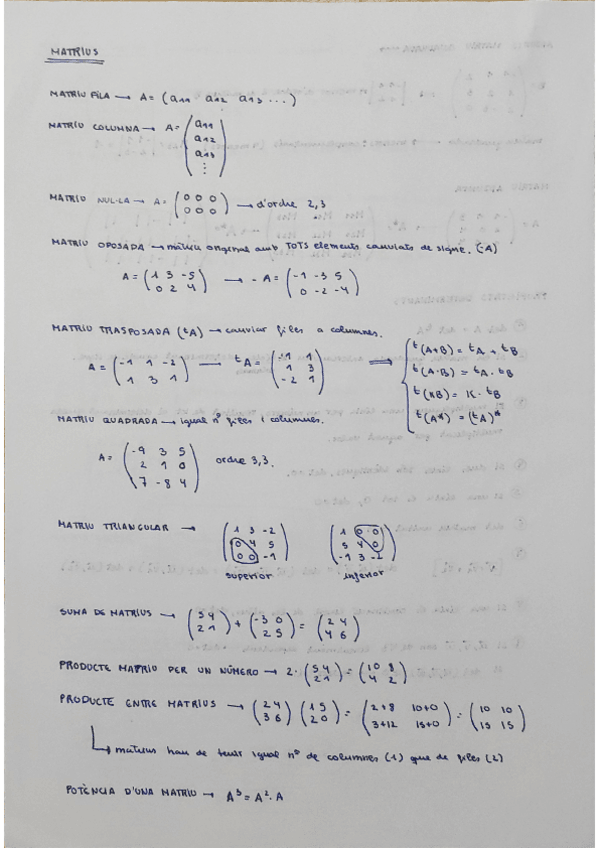 MATRIUS
MATRIU FILA → A = (a11 a12 a13 ...)
MATRIU COLUMNA → A = (a11
a12
a13
⋮)
MATRIU NUL·LA → A = (0 0 0
0 0 0) → d'ordre 2,3
MATRIU OPOSADA → matriu original amb TOTS elements canviats de signe. (-A)
A = (1 3 -5
0 2 4) → -A = (-1 -3 5
0 -2 -4)
MATRIU TRASPOSADA (tA) → canviar files a columnes.
A = (-1 1 -2
1 3 1) → tA = (-1 1
1 3
-2 1) ⟹
t(A+B) = tA + tB
t(A·B) = tA · tB
t(KB) = K · tB
MATRIU QUADRADA → igual nº files i columnes.
A = (-9 3 5
2 1 0
7 -8 4) ordre 3,3.
MATRIU TRIANGULAR → (1 3 -2
0 4 5
0 0 -1)
superior
(1 0 0
5 4 0
-1 3 -1)
inferior
SUMA DE MATRIUS → (5 4
2 1) + (-3 0
2 5) = (2 4
4 6)
PRODUCTE MATRIU PER UN NÚMERO → 2· (5 4
2 1) = (10 8
4 2)
PRODUCTE ENTRE MATRIUS → (2 4
3 6) (1 5
2 0) = (2+8 10+0
3+12 15+0) = (10 10
15 15)
→ matrius han de tenir igual nº de columnes (1) que de files (2)
POTÈNCIA D'UNA MATRIU → A³ = A² · A